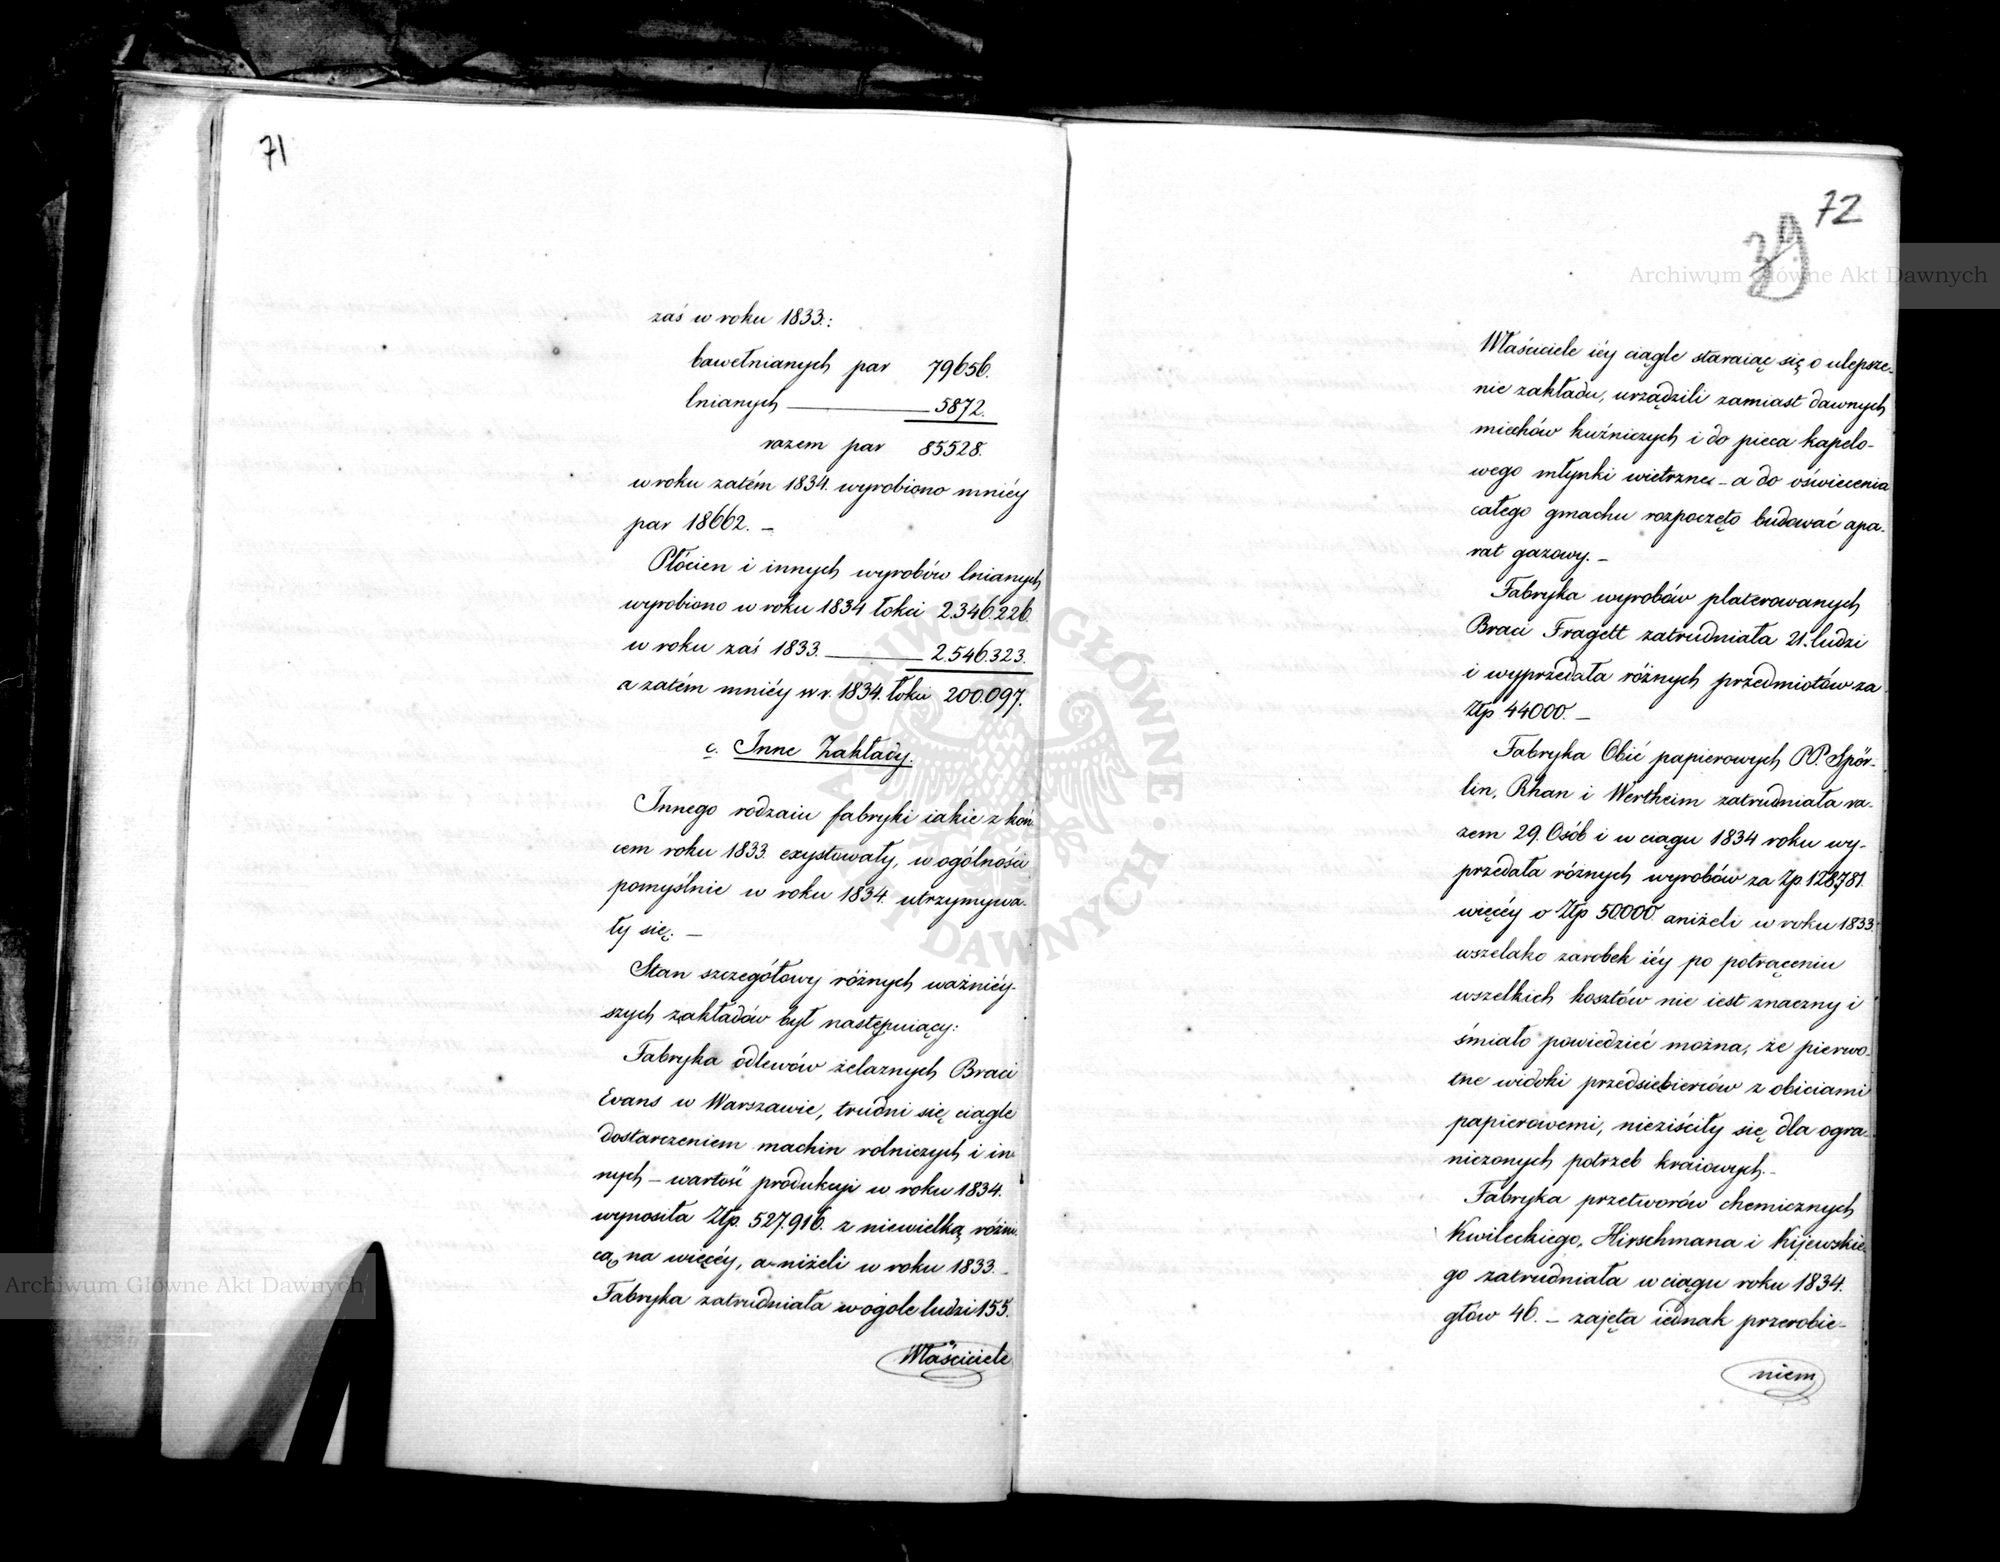 71
zaś w roku 1833.:
bawełnianych par 79656.
lnianych 5872.
razem par 85528.
w roku zatém 1834. wyrobiono mniéy
par 18662. –
Płócien i innych wyrobów lnianych
wyrobiono w roku 1834 łokci 2.346.226.
w roku zaś 1833. 2.546.323.
a zatém mniéy w r. 1834. łokci 200.097.
c. Inne Zakłady.
Innego rodzaiu fabryki iakie z koń-
cem roku 1833. exystowały, w ogólności
pomyślnie w roku 1834. utrzymywa-
ły się. –
Stan szczegółowy różnych ważniéy-
szych zakładów był następuiący:
Fabryka odlewów żelaznych Braci
Evans w Warszawie, trudni się ciągle
dostarczeniem machin rolniczych i in-
nych – wartość produkcyi w roku 1834.
wynosiła Złp. 527.916. z niewielką różni-
cą na więcéy, a niżeli w roku 1833. –
Fabryka zatrudniała w ogóle ludzi 155.
Właściciele
72
39
Właściciele iéy ciągle staraiąc się o ulepsze-
nie zakładu, urządzili zamiast dawnych
miechów kuźniczych i do pieca kapelo-
wego młynki wietrzne – a do oświecenia
całego gmachu rozpoczęto budować apa-
rat gazowy. –
Fabryka wyrobów platerowanych
Braci Fragett zatrudniała 21. ludzi
i wyprzedała różnych przedmiotów za
Złp 44000. –
Fabryka Obić papierowych PP. Spör-
lin, Rhan i Wertheim zatrudniała ra-
zem 29. Osób i w ciągu 1834 roku wy-
przedała różnych wyrobów za Zp. 128,781.
więcéy o Złp 50.000. aniżeli w roku 1833.
wszelako zarobek iéy po potrąceniu
wszelkich kosztów nie iest znaczny i
śmiało powiedzieć można, że pierwo-
tne widoki przedsiebierców z obiciami
papierowemi, nieziściły się dla ogra-
niczonych potrzeb kraiowych. –
Fabryka przetworów chemicznych
Kwileckiego, Hirschmana i Kijewskie-
go zatrudniała w ciągu roku 1834.
głów 46. – zajęta iednak przerobie-
niem
Archiwum Główne Akt Dawnych
Archiwum Główne Akt Dawnych
ARCHIWUM GŁÓWNE AKT DAWNYCH